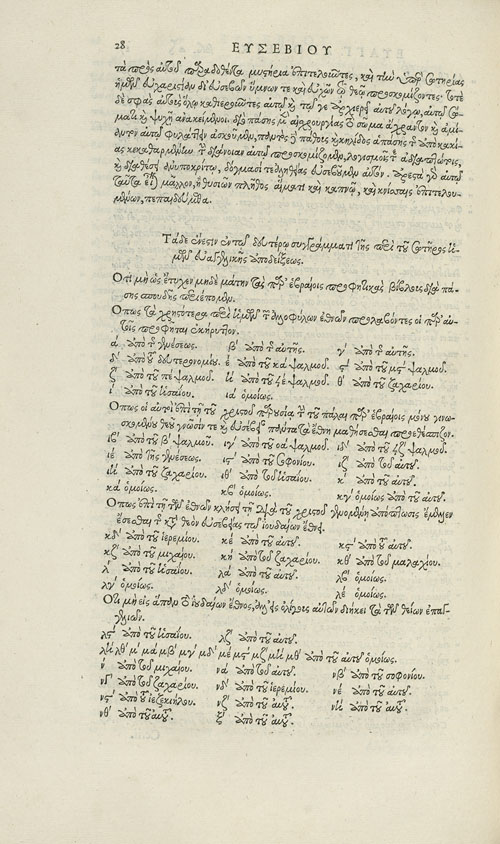 28 ΕΥΣΕΒΙΟΥ
τὰ πρὸς αὐτοῦ παραδοθέντα μυστήρια ἐπιτελοῦντες, καὶ τὴν ὑπὲρ σωτηρίας
ἡμῶν εὐχαριστίαν δι' εὐσεβῶν ὕμνων τε καὶ εὐχῶν τῷ θεῷ προσκομίζοντες· τότε
δὲ σφᾶς αὐτοὺς ὅλῳ καθιεροῦντες αὐτῷ καὶ τῷ γε ἀρχιερεῖ αὐτοῦ λόγῳ, αὐτῷ σώ-
ματι καὶ ψυχῇ ἀνακείμενοι.
ας κεκαθαρμένην τὴν διάνοιαν αὐτῷ προσκομίζομεν,
καὶ διαθέσει ἀνυποκρίτῳ, δόγμασί τε ἀληθείας εὐσεβοῦμεν αὐτόν.
ταῦτα μᾶλλον, ἢ θυσιῶν πλῆθος αἵματι καὶ καπνῷ, καὶ κνίσαις ἐπιτελου-
μένων, πεπαιδεύμεθα.
Τάδε ἔνεστιν ἐν τῷ δευτέρῳ συγγράμματι τῆς περὶ τοῦ σωτῆρος ἡ-
μῶν εὐαγγελικῆς ἀποδείξεως.
Ὅτι μὴ ὡς ἔτυχεν μηδὲ μάτην τὰς παρ' ἑβραίοις προφητικὰς βίβλους διὰ πά-
σης σπουδῆς περιέπομεν.
Ὅπως τὰ χρηστότερα περὶ ἡμῶν τῶν ἀλλοφύλων ἐθνῶν προλαβόντες οἱ παρ' αὐ-
τοῖς προφῆται ἐκήρυττον.
α´ ἀπὸ τῆς γενέσεως. β´ ἀπὸ τῆς αὐτῆς. γ´ ἀπὸ τῆς αὐτῆς.
δ´ ἀπὸ τοῦ δευτερονομίου. ε´ ἀπὸ τοῦ κα´ ψαλμοῦ. ϛ´ ἀπὸ τοῦ μϛ´ ψαλμοῦ.
ζ´ ἀπὸ τοῦ πε´ ψαλμοῦ. η´ ἀπὸ τοῦ ϟε´ ψαλμοῦ. θ´ ἀπὸ τοῦ ζαχαρίου.
ι´ ἀπὸ τοῦ ἡσαίου. ια´ ὁμοίως.
Ὅπως οἱ αὐτοὶ ἐπὶ τῇ τοῦ χριστοῦ παρουσίᾳ τὴν τοῦ πάλαι παρ' ἑβραίοις μόνοις γινω-
σκομένου θεοῦ γνῶσίν τε καὶ εὐσέβειαν πάντα τὰ ἔθνη μαθήσεσθαι προεθέσπιζον.
ιβ´ ἀπὸ τοῦ β´ ψαλμοῦ. ιγ´ ἀπὸ τοῦ οα´ ψαλμοῦ. ιδ´ ἀπὸ τοῦ ϟζ´ ψαλμοῦ.
ιε´ ἀπὸ τῆς γενέσεως. ιϛ´ ἀπὸ τοῦ σοφονίου. ιζ´ ἀπὸ τοῦ αὐτοῦ.
ιη´ ἀπὸ τοῦ ζαχαρίου. ιθ´ ἀπὸ τοῦ ἡσαίου. κ´ ἀπὸ τοῦ αὐτοῦ.
κα´ ὁμοίως. κβ´ ὁμοίως. κγ´ ὁμοίως ἀπὸ τοῦ αὐτοῦ.
Ὅπως ἐπὶ τῇ τῶν ἐθνῶν κλήσει τῇ διὰ τοῦ χριστοῦ γενομένῃ ἀπόπτωσις ἔμελλεν
ἔσεσθαι τῆς κατὰ θεὸν εὐσεβείας τοῦ ἰουδαίων ἔθνους.
κδ´ ἀπὸ τοῦ ἱερεμίου. κε´ ἀπὸ τοῦ αὐτοῦ. κϛ´ ἀπὸ τοῦ αὐτοῦ.
κζ´ ἀπὸ τοῦ μιχαίου. κη´ ἀπὸ τοῦ ζαχαρίου. κθ´ ἀπὸ τοῦ μαλαχίου.
λ´ ἀπὸ τοῦ ἡσαίου. λα´ ἀπὸ τοῦ αὐτοῦ. λβ´ ὁμοίως.
λγ´ ὁμοίως. λδ´ ὁμοίως. λε´ ὁμοίως.
Ὅτι μὴ εἰς ἅπαν τὸ ἰουδαίων ἔθνος, ἀλλ' εἰς ὀλίγους αὐτῶν διήκει τὰ τῶν θείων ἐπαγ-
γελιῶν.
λϛ´ ἀπὸ τοῦ ἡσαίου. λζ´ ἀπὸ τοῦ αὐτοῦ.
λη´ λθ´ μ´ μα´ μβ´ μγ´ μδ´ με´ μϛ´ μζ´ μη´ μθ´ ἀπὸ τοῦ αὐτοῦ ὁμοίως.
ν´ ἀπὸ τοῦ μιχαίου. να´ ἀπὸ τοῦ αὐτοῦ. νβ´ ἀπὸ τοῦ σοφονίου.
νγ´ ἀπὸ τοῦ ζαχαρίου. νδ´ ἀπὸ τοῦ ἱερεμίου. νε´ ἀπὸ τοῦ αὐτοῦ.
νϛ´ ἀπὸ τοῦ ἰεζεκιήλου. νζ´ ἀπὸ τοῦ αὐτοῦ. νη´ ἀπὸ τοῦ αὐτοῦ.
νθ´ ἀπὸ τοῦ αὐτοῦ. ξ´ ἀπὸ τοῦ αὐτοῦ.